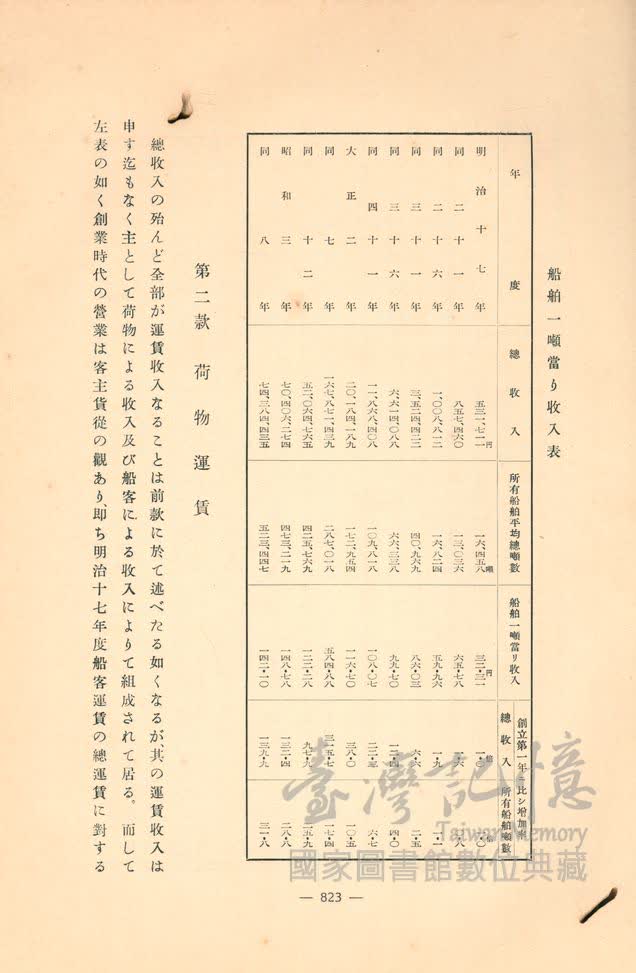 船舶一噸當り收入表
年度 總收入 所有船舶平均總噸數 船舶一噸當リ收入 創立第一年ニ比シ增加率 總收入 所有船舶噸數
明治十七年 五三一、七一一円 一六、四五八噸 三二・三一円 一・〇倍
同二十一年 八五七、四六〇 一三、〇三六 六五・七八 一・六
同二十六年 一、〇〇八、八一二 一六、八二四 五九・九六 一・九
同三十一年 三、五二四、四二二 四〇、九六九 八六・〇三 六・六 二・五
同三十六年 六、六一四、〇八八 六六、三三八 九九・七〇 一二・四 四・〇
同四十一年 一一、八六八、四〇八 一〇九、八一八 一〇八・〇七 二二・三 六・七
大正二年 二〇、一八四、一八九 一七二、九五四 一一六・七〇 三八・〇 一〇・五
同七年 一六七、八七一、四三九 二八七、〇一八 五八四・八八 三一五・七 一七・四
同十二年 五二、〇六四、七六五 四二五、七六九 一二二・二八 九七・九 二五・九
昭和三年 七〇、四〇六、二七四 四七三、二一九 一四八・七八 一三二・四 二八・八
同八年 七四、三八四、四三五 五二三、四四七 一四二・一〇 一三九・九 三一・八
第二款 荷物運賃
總收入の殆んど全部が運賃收入なることは前款に於て述べたる如くなるが、其の運賃收入は
申す迄もなく主として荷物による收入及び船客による收入によりて組成されて居る。而して
左表の如く創業時代の營業は客主貨從の觀あり、即ち明治十七年度船客運賃の總運賃に對する
— 823 —
臺灣記憶
Taiwan Memory
國家圖書館數位典藏